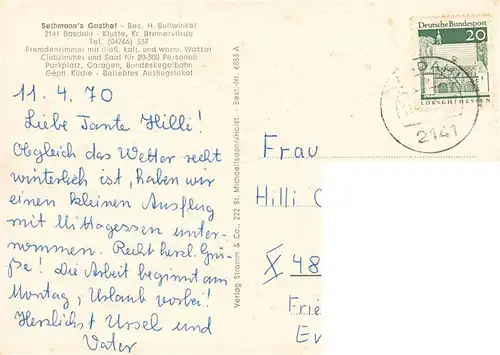 Sethmann's Gasthof - Bes. H. Bullwinkel
2141 Basdahl - Kluste, Kr. Bremervörde
Tel. (04766) 337
Fremdenzimmer mit fließ. kalt. und warm. Wasser
Clubzimmer und Saal für 20-300 Personen
Parkplatz, Garagen, Bundeskegelbahn
Gepfl. Küche - Beliebtes Ausflugslokal
11. 4. 70
Liebe Tante Hilli!
Obgleich das Wetter recht
winterlich ist, haben wir
einen kleinen Ausflug
mit Mittagessen unter-
nommen. Recht herzl. Grü-
ße! Die Arbeit beginnt am
Montag, Urlaub vorbei!
Herzlichst Ursel und
Vater
Verlag Stramm & Co., 222 St. Michaelisdonn/Holst. - Best.-Nr. 6863 A
Deutsche Bundespost
20
LORSCH/HESSEN
2141
Frau
Hilli
X 48
Frie